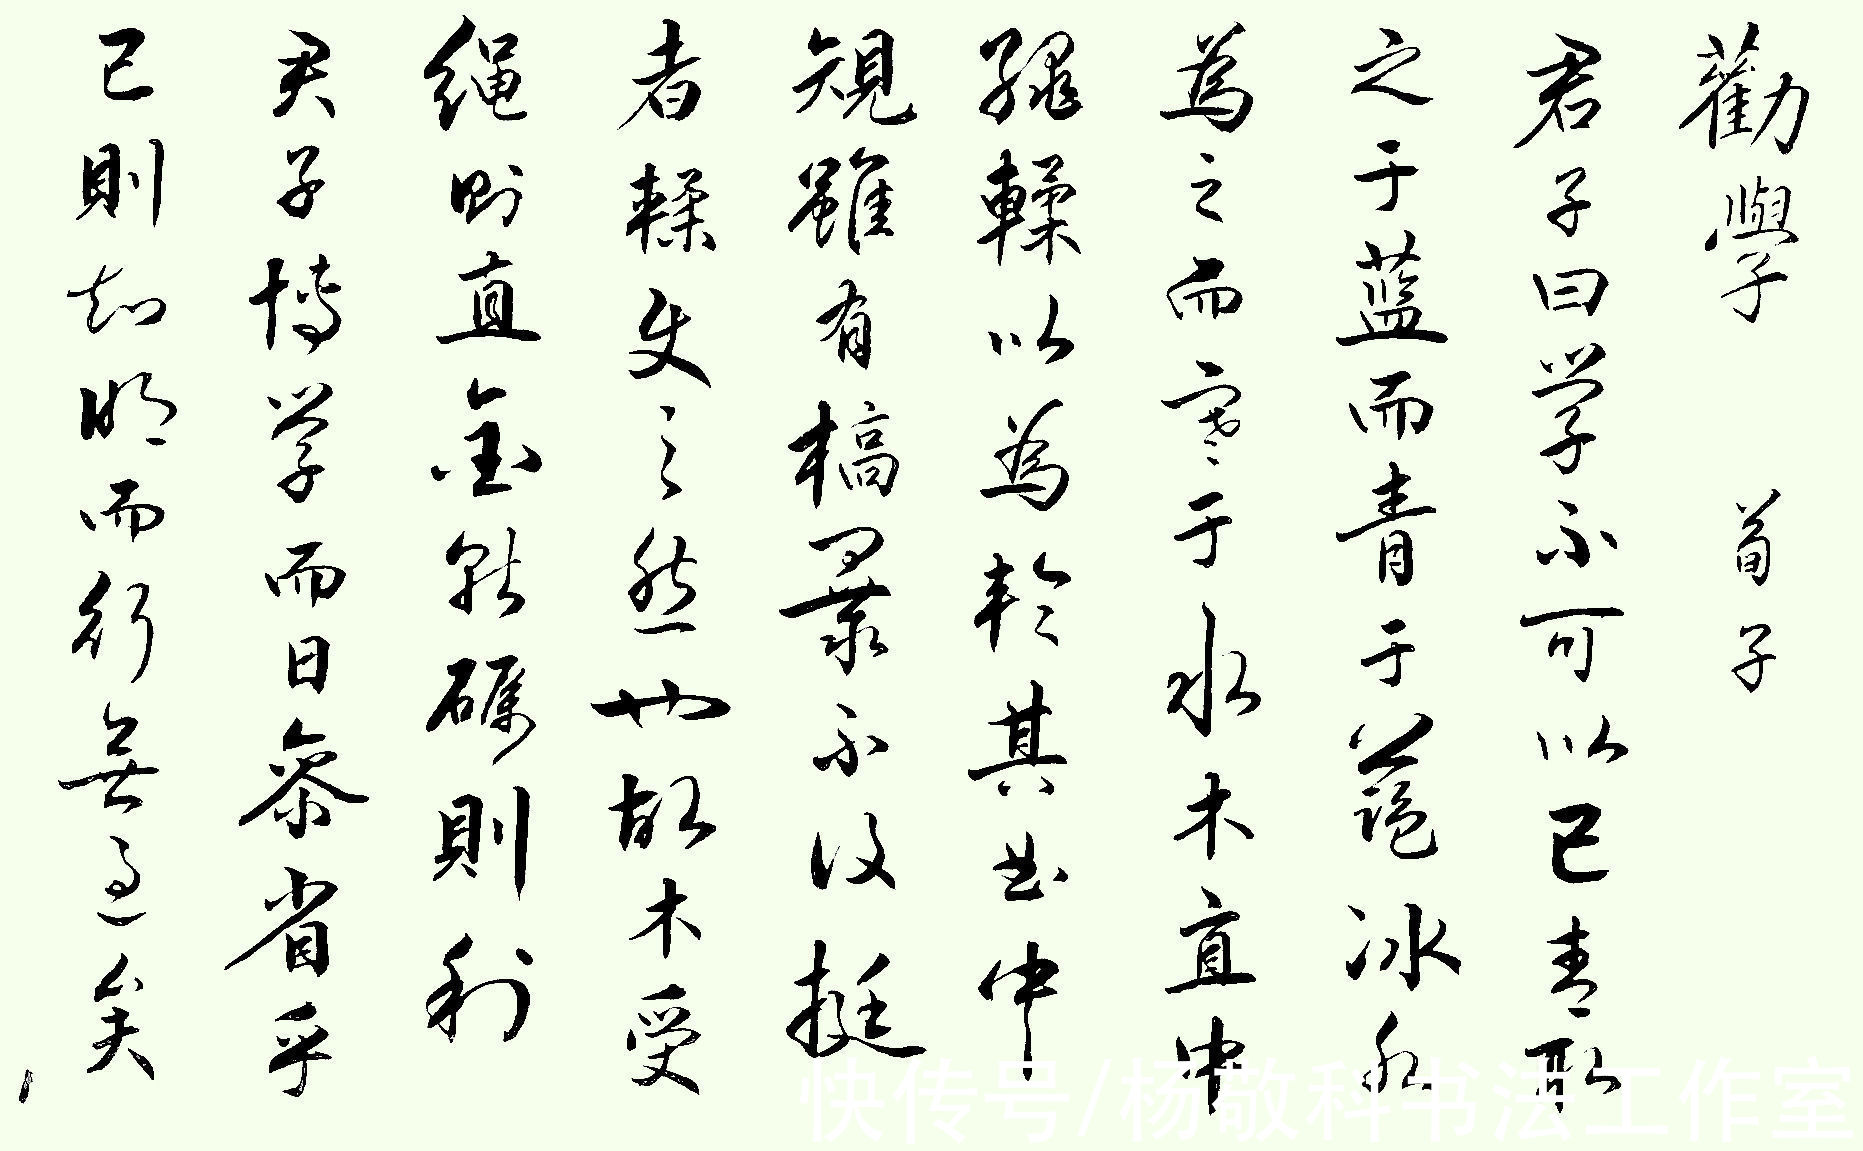 勸學 荀子
君子曰学不可以已青取
之于蓝而青于蓝冰水
為之而寒于水木直中
繩輮以為輪其曲中
規雖有槁暴不復挺
者輮使之然也故木受
绳則直金就礪則利
君子博学而日參省乎
己則知明而行無過矣
快传号/杨敬科书法工作室